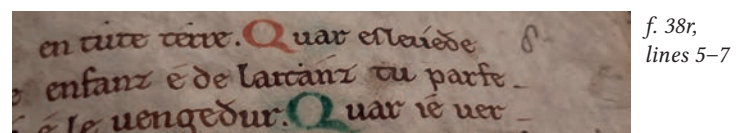 en tute terre. Quar esleuiede
enfanz e de laitanz tu parfe-
e le uengedur. Quar ie uer-
f. 38r,
lines 5–7